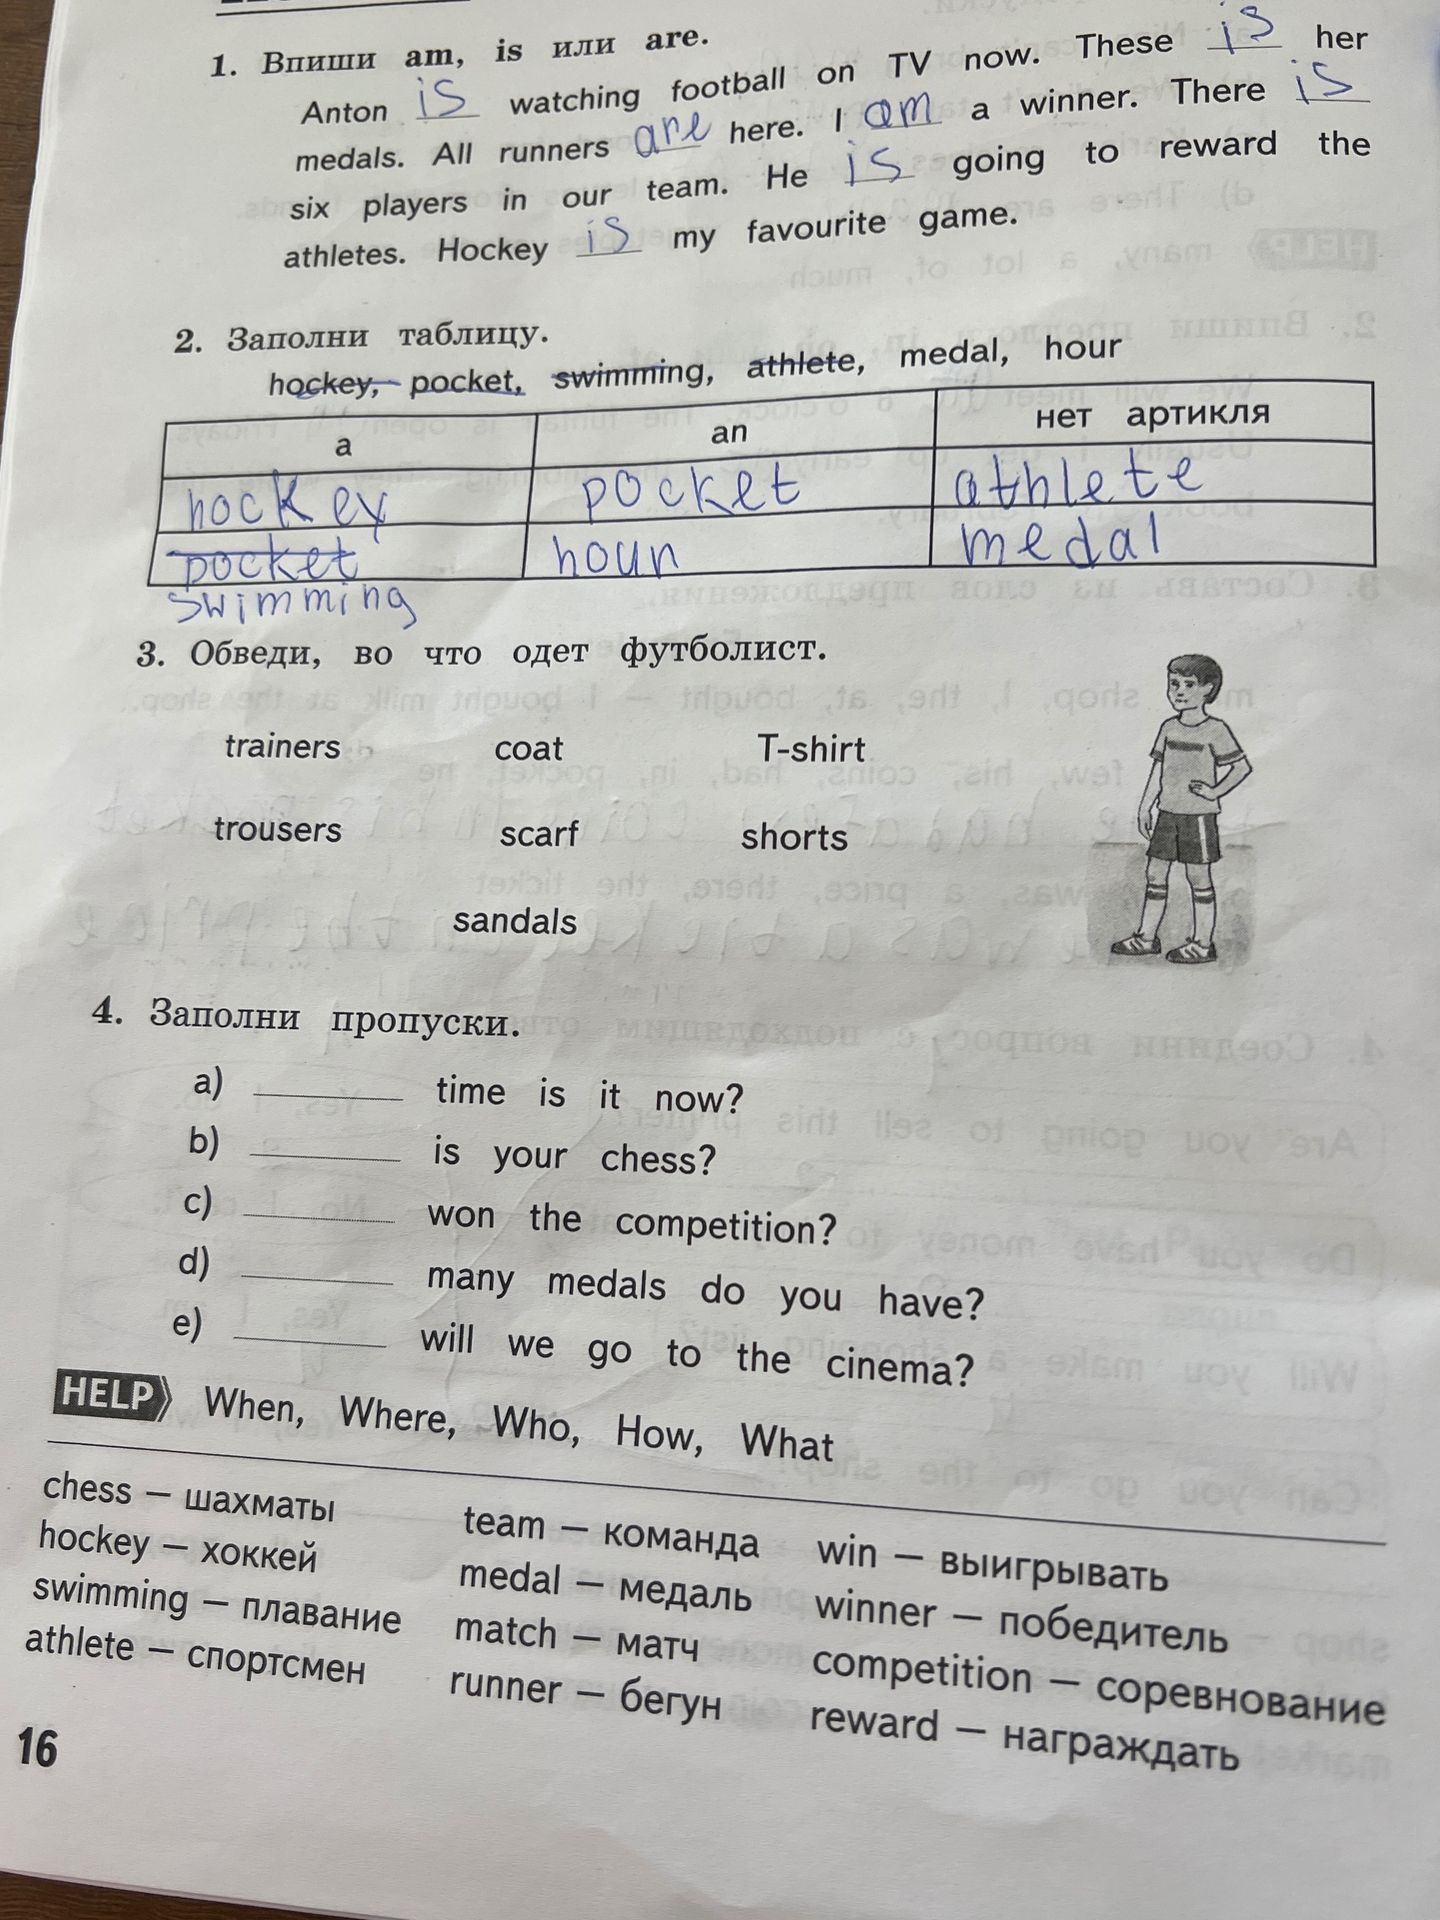 1. Впиши am, is или are.
Anton is watching football on TV now. These is her
medals. All runners are here. I am a winner. There is
six players in our team. He is going to reward the
athletes. Hockey is my favourite game.
2. Заполни таблицу.
hockey, pocket, swimming, athlete, medal, hour
a an нет артикля
hockey pocket athlete
pocket houn medal
swimming
3. Обведи, во что одет футболист.
trainers coat T-shirt
trousers scarf shorts
sandals
4. Заполни пропуски.
a) ______ time is it now?
b) ______ is your chess?
c) ______ won the competition?
d) ______ many medals do you have?
e) ______ will we go to the cinema?
HELP When, Where, Who, How, What
chess — шахматы team — команда win — выигрывать
hockey — хоккей medal — медаль winner — победитель
swimming — плавание match — матч competition — соревнование
athlete — спортсмен runner — бегун reward — награждать
16